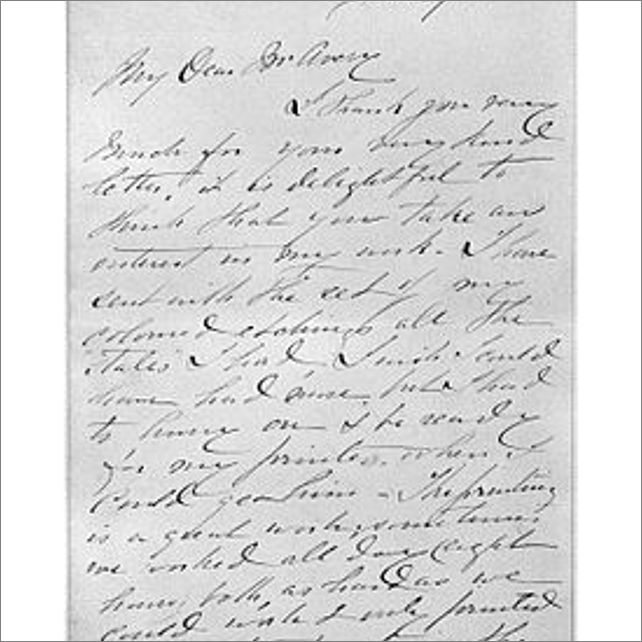 My Dear Mr Avery
I thank you very
much for your very kind
letter, it is delightful to
think that you take an
interest in my work. I have
sent with the set of my
colored etchings all the
"states" I had, I wish I could
have had more but I had
to hurry on & be ready
for my printer, when I
could get him – The printing
is a great work; sometimes
we worked all day (eight
hours) both, as hard as we
could work & only printed